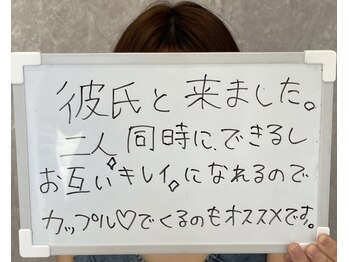 彼氏と来ました。
二人同時に、できるし
お互いキレイ。になれるので
カップル♡でくるのもオススメです。